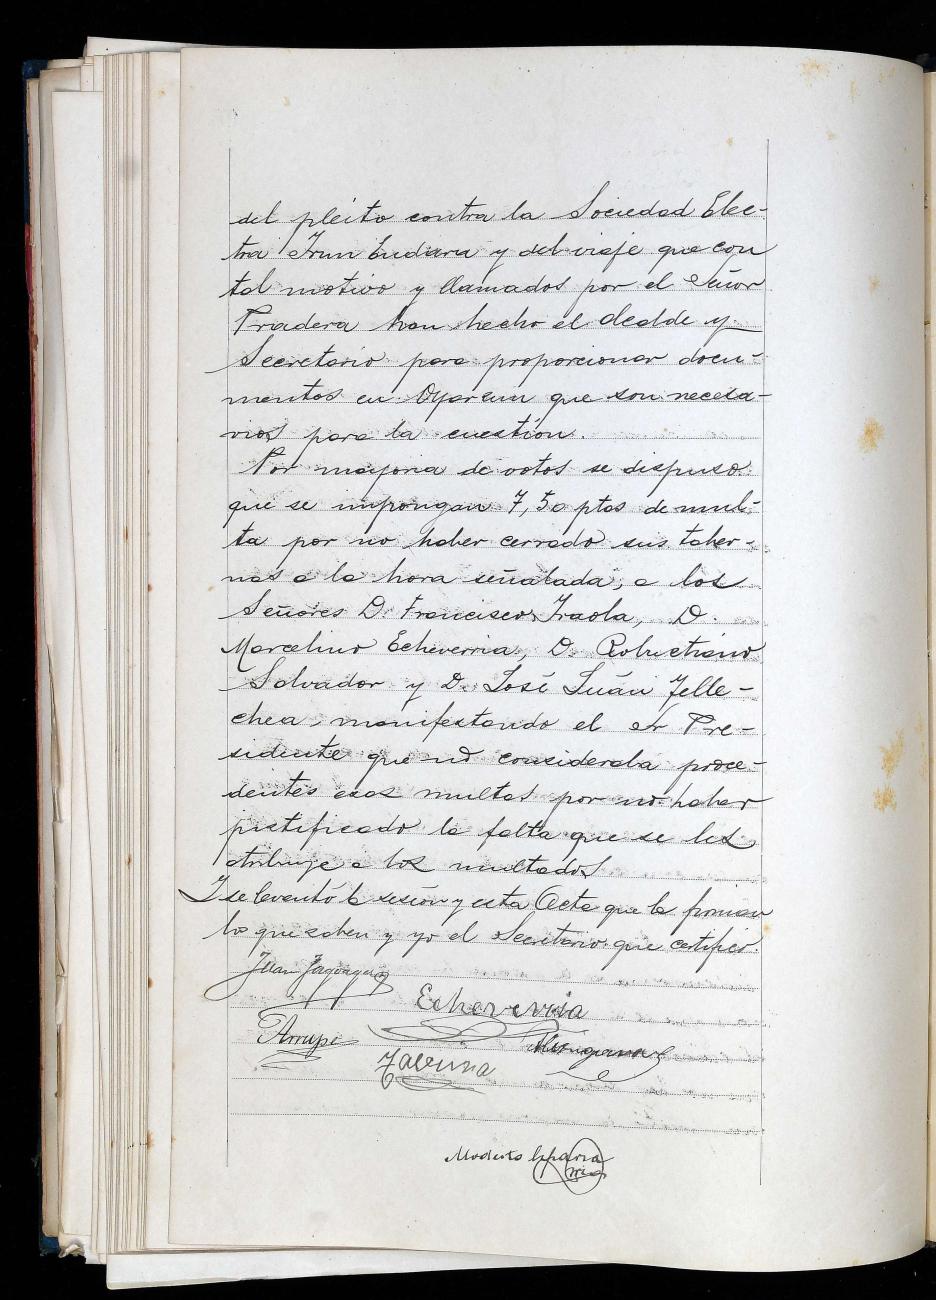 del pleito contra la Sociedad Elec-
tra Irun Endara y del viaje que con
tal motivo y llamados por el Señor
Pradera han hecho el Alcalde y
Secretario para proporcionar docu-
mentos en Oyarzun que son necesa-
rios para la cuestión.
Por mayoria de votos se dispuso
que se impongan 7,50 ptas de mul-
ta por no haber cerrado sus taber-
nas a la hora señalada, a los
Señores D. Francisco Iraola, D.
Marcelino Echeverria, D. Robustiano
Salvador y D. José Juán Telle-
chea, manifestando el Sr Pre-
sidente que no consideraba proce-
dentes esas multas por no haber
justificado la falta que se les
atribuye a los multados
Y se levantó la sesión y esta Acta que la firman
lo que saben y yo el Secretario que certifico.
Juan
Echeverria
Arrupe
Modesto